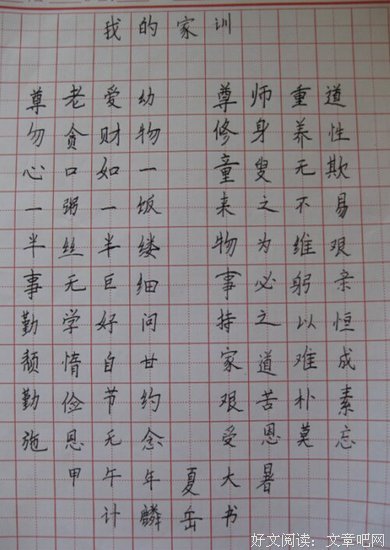 我的家训
尊老爱幼 尊师重道
勿贪财物 修身养性
心口如一 童叟无欺
一粥一饭 来之不易
半丝半缕 物为维艰
事无巨细 事必躬亲
勤学好问 持之以恒
颓情自甘 家道难成
勤俭节约 艰苦朴素
施恩无念 受恩莫忘
甲午年夏大暑
计麟岳书
好文阅读：文章吧网